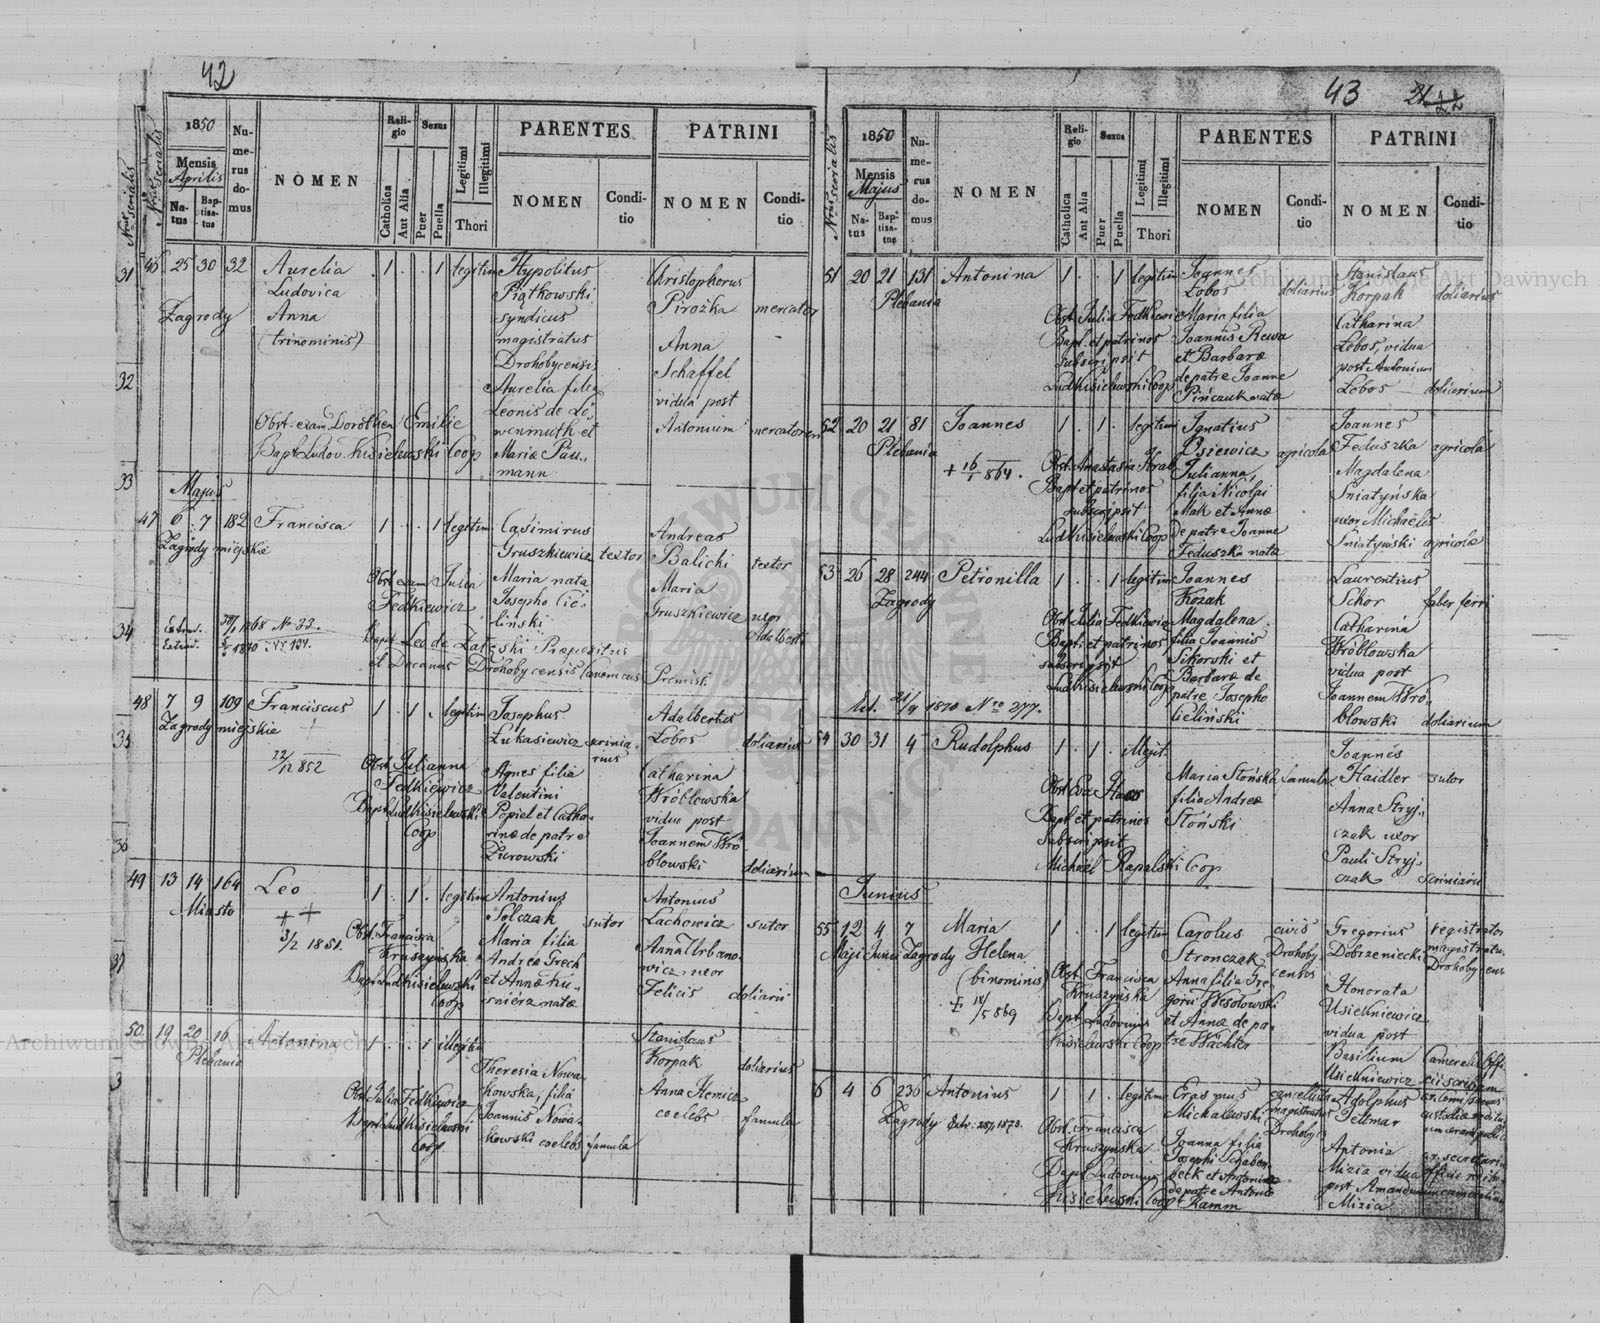 42
1850
Mensis
Aprilis
Natus
Baptisatus
Numerus domus
NOMEN
Religio
Catholica
Aut Alia
Sexus
Puer
Puella
Legitimi
Illegitimi
Thori
PARENTES
NOMEN
Conditio
PATRINI
NOMEN
Conditio
46 25 30 32 Aurelia 1 . . 1 legitim Hypolitus Christophorus
Ludovica Piątkowski Pirożka mercator
Zagrody Anna syndicus
(trinominis) magistratus Anna
Drohobycensis Schaffel
Aurelia filia vidua post
Leonis de Lö- Antonium mercatorem
Obst. exam. Dorothea Emilie wenmuth et
Bapt. Ludov. Kisielewski Coop Mariæ Pau-
mann
Majus
47 6 7 182 Francisca 1 . . 1 legitim Casimirus Andreas
Zagrody miejskie Gruszkiewicz textor Balicki textor
Obst. exam. Julia Maria nata Maria
Fedkiewicz Josepho Cie- Gruszkiewicz uxor
liński Adalberti
Bapt. Leo de Zatęski Præpositus
et Decanus Drohobycensis Canonicus Premisl.
48 7 9 109 Franciscus 1 . 1 . legitim Josephus Adalbertus
Zagrody miejskie Łukasiewicz scrinia- Łobos doliarius
rius
22/12 852 Obst. Julianna Agnes filia Catharina
Fedkiewicz Valentini Wróblowska
Bapt. Lud. Kisielewski Popiel et Catha- vidua post
Coop rinæ de patre Joannem Wró-
Żurowski blowski doliarium
49 13 14 164 Leo 1 . 1 . legitim Antonius Antonius
Miasto Solczak sutor Lachowicz sutor
3/2 1851. Obst. Francisca Maria filia Anna Urbano-
Kruszyńska Andreæ Grech wicz, uxor
Bapt. Lud. Kisielewski et Annæ Ku- Felicis doliarii
Coop śnierz natæ
50. 19 20 16 Antonina 1 . . 1 illegitim Stanislaus
Plebania Korpak doliarius
Theresia Nowa-
Obst. Julia Fedkiewicz kowska, filia Anna
Bapt. Lud. Kisielewski Joannis Nowa- coelebs famula
Coop kowski coelebs famula
43
1850
Mensis
Majus
Natus
Baptisatus
Numerus domus
NOMEN
Religio
Catholica
Aut Alia
Sexus
Puer
Puella
Legitimi
Illegitimi
Thori
PARENTES
NOMEN
Conditio
PATRINI
NOMEN
Conditio
51 20 21 131 Antonina 1 . . 1 legitim Joannes Stanislaus
Plebania Łobos doliarius Korpak doliarius
Obst. Julia Fedkiewicz Maria filia Catharina
Bapt. et patrinos Joannis Rewa Łobos, vidua
subscripsit et Barbaræ post Antonium
Lud. Kisielewski Coop de patre Joanne Łobos doliarium
Pińczuk natæ
52 20 21 81 Joannes 1 . 1 . legitim Ignatius Joannes
Plebania Osiewicz agricola Feduszka agricola
Obst. Anastasia Kral Julianna, Magdalena
Bapt. et patrinos filia Nicolai Sniatyńska
subscripsit Mak et Annæ uxor Michaelis
Lud. Kisielewski Coop de patre Joanne Sniatyński agricolæ
Feduszka natæ
53 26 28 244 Petronilla 1 . . 1 legitim Joannes Laurentius
Zagrody Kozak Schor faber ferri
Obst. Julia Fedkiewicz Magdalena Catharina
Bapt. et patrinos filia Joannis Wróblowska
subscripsit Sikorski et vidua post
Lud. Kisielewski Coop Barbaræ de Joannem Wró-
patre Josepho blowski doliarium
Cieliński
1870 Nro 277.
54 30 31 4 Rudolphus 1 . 1 . illegit. Joannes
Maria Słońska famula Haidler sutor
Obst. Eva Haas filia Andreæ Anna Stryj-
Bapt. et patrinos Słoński czak uxor
subscripsit Pauli Stryj-
Michael Rapalski Coop czak scriniarii
Junius
55 12 4 7 Maria 1 . . 1 legitim Carolus civis Gregorius registrator
Maji Junii Zagrody Helena Stronczak Drohoby- Dobrzeniecki magistratus
(binominis) Obst. Francisca Anna filia Gre- censis Drohobycens
Kruszyńska gorii Wesołowski Honorata
Bapt. Ludovicus et Annæ de pa- Usielkniewicz
Kisielewski Coop tre Wächter vidua post
Basilium Cameralis Offi-
Usielkniewicz cii scribam
4 6 236 Antonius 1 . 1 . legitim Erasmus cancellista Adolphus
Zagrody Michałewski magistratus
Obst. Francisca Drohobyc
Kruszyńska Joanna filia Antonia
Bapt. Ludovicus Josephi Schaben- Mizia vidua
Kisielewski Coop beck et Antoniæ post Amandum
de patre Antonio Mizia
Ramm
Archiwum Główne Akt Dawnych
Archiwum Główne Akt Dawnych